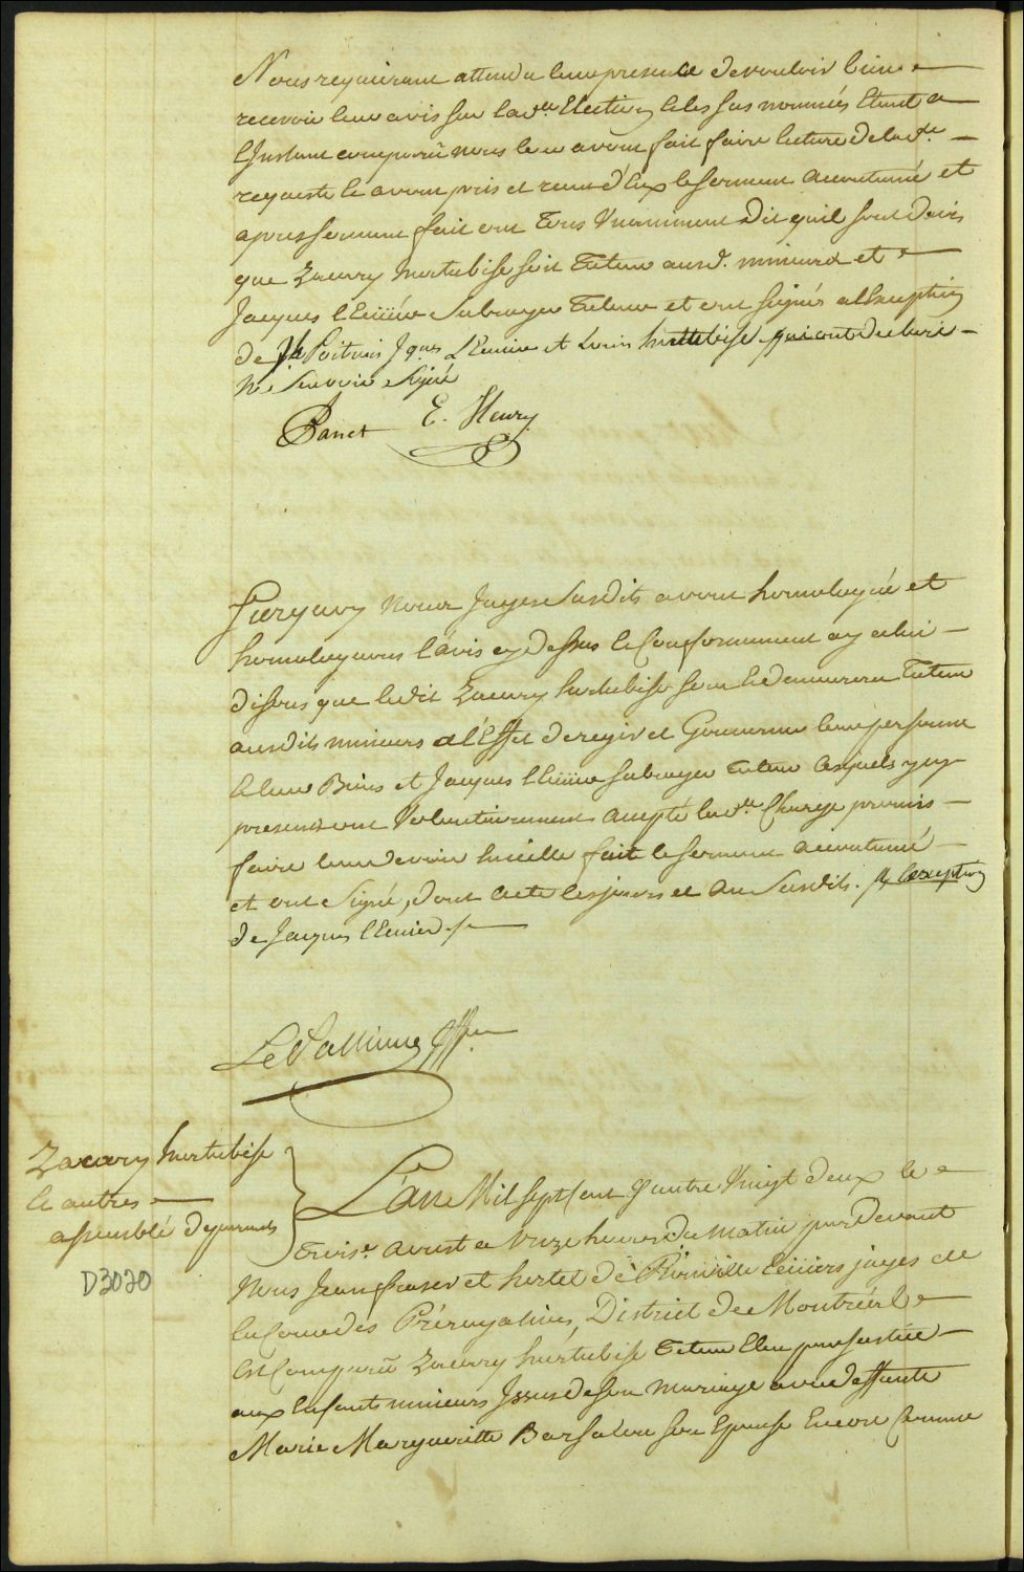 Nous requirant attendu leur presence de vouloir bien
recevoir leur avis sur lad.te Election, & les sus nommés Etant a
L'Instant comparû nous leur avons fait faire lecture de lad.te
requeste & avons pris et recue d'Eux le serment accoutumé et
apres serment fait ont Tous Unanimement Dit quil sont Davis
que Zacary hurtubise soit Tuteur ausd. mineurs et
Jacques l'Ecuier Subroger Tuteur et ont signés a l'Exception
de Poitrais Jques L'Ecuier et Louis hurtebise qui ont declaré
Ne Scavoir Signé
Panet E. Henry
Surquoy Nous Juges Susdits avons homologué et
homologuons l'avis cy dessus & Conformement ay celui
disons que ledit Zacary hurtubise sera & demeurera Tuteur
ausdits mineurs a l'Effet de regir et Gouverner leur personne
& leur Biens et Jacques l'Ecuier subroger Tuteur lesquels yey
presens ont Volontairement accepté lad.te Charge promis
faire leur devoir huielle fait le serment accoutumé
et ont Signé, dont acte les jours et An Susdits. a lexception
de Jacques l'Ecuier
Le Pallieur Gffier
Zacary hurtubise
& autres
assemblé de parents
D3020
L'an Mil sept Cent Quatre Vingt deux le
Trois.e aoust a Unze heures du matin pardevant
Nous Jean fraser et hertel De Rouville Ecuiers juges de
la Cour des Prérogatives, District de Montréal
Est Comparû Zacary hurtubise Tuteur Elue par Justice
aux Enfants mineurs Issus de son mariage avec deffunte
Marie Margueritte Barsalou son Epouse Encore Comme